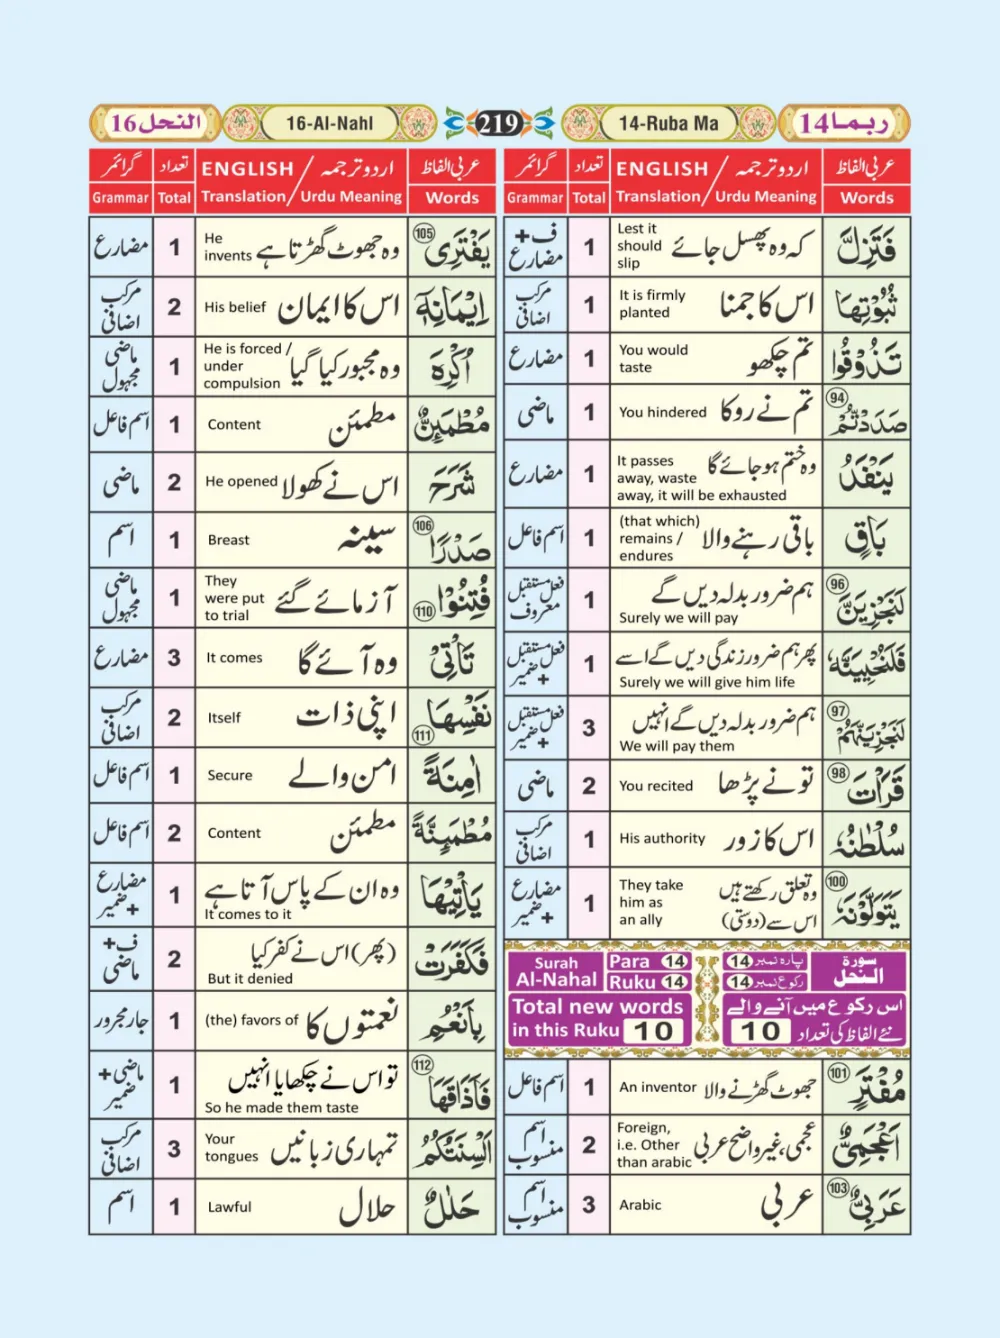 ربما 14
14-Ruba Ma
219
16-Al-Nahl
النحل 16
عربی الفاظ اردو ترجمہ / ENGLISH تعداد گرائمر
Words Urdu Meaning / Translation Total Grammar
فَتَزِلَّ کہ وہ پھسل جائے Lest it should slip 1 ف+ مضارع
ثُبُوْتِهَا اس کا جمنا It is firmly planted 1 مرکب اضافی
تَذُوْقُوا تم چکھو You would taste 1 مضارع
صَدَدْتُّمْ 94 تم نے روکا You hindered 1 ماضی
يَنْفَدُ وہ ختم ہو جائے گا It passes away, waste away, it will be exhausted 1 مضارع
بَاقٍ باقی رہنے والا (that which) remains / endures 1 اسم فاعل
لَنَجْزِيَنَّ 96 ہم ضرور بدلہ دیں گے Surely we will pay 1 فعل مستقبل معروف
فَلَنُحْيِيَنَّهٗ پھر ہم ضرور زندگی دیں گے اسے Surely we will give him life 1 فعل مستقبل + ضمیر
لَنَجْزِيَنَّهُمْ 97 ہم ضرور بدلہ دیں گے انہیں We will pay them 3 فعل مستقبل + ضمیر
قَرَاْتَ 98 تو نے پڑھا You recited 2 ماضی
سُلْطٰنُهٗ اس کا زور His authority 1 مرکب اضافی
يَتَوَلَّوْنَهٗ 100 وہ تعلق رکھتے ہیں اس سے (دوستی) They take him as an ally 1 مضارع + ضمیر
سورة النحل پارہ نمبر 14 رکوع نمبر 14
Surah Al-Nahal Para 14 Ruku 14
اس رکوع میں آنے والے نئے الفاظ کی تعداد 10
Total new words in this Ruku 10
مُفْتَرٍ 101 جھوٹ گھڑنے والا An inventor 1 اسم فاعل
اَعْجَمِيٌّ عجمی، غیر واضح عربی Foreign, i.e. Other than arabic 2 اسم منسوب
عَرَبِيٌّ 103 عربی Arabic 3 اسم منسوب
عربی الفاظ اردو ترجمہ / ENGLISH تعداد گرائمر
Words Urdu Meaning / Translation Total Grammar
يَفْتَرِى 105 وہ جھوٹ گھڑتا ہے He invents 1 مضارع
اِيْمَانِهٖ اس کا ایمان His belief 2 مرکب اضافی
اُكْرِهَ وہ مجبور کیا گیا He is forced / under compulsion 1 ماضی مجہول
مُطْمَىِٕنٌّ مطمئن Content 1 اسم فاعل
شَرَحَ اس نے کھولا He opened 2 ماضی
صَدْرًا 106 سینہ Breast 1 اسم
فُتِنُوْا 110 آزمائے گئے They were put to trial 1 ماضی مجہول
تَاْتِىْ وہ آئے گا It comes 3 مضارع
نَفْسِهَا 111 اپنی ذات Itself 2 مرکب اضافی
اٰمِنَةً امن والے Secure 1 اسم فاعل
مُطْمَىِٕنَّةً مطمئن Content 2 اسم فاعل
يَاْتِيْهَا وہ ان کے پاس آتا ہے It comes to it 1 مضارع + ضمیر
فَكَفَرَتْ (پھر) اس نے کفر کیا But it denied 2 ف+ ماضی
بِاَنْعُمِ نعمتوں کا (the) favors of 1 جار مجرور
فَاَذَاقَهَا 112 تو اس نے چکھایا انہیں So he made them taste 1 ماضی + ضمیر
اَلْسِنَتُكُمْ تمہاری زبانیں Your tongues 3 مرکب اضافی
حَلٰلٌ حلال Lawful 1 اسم